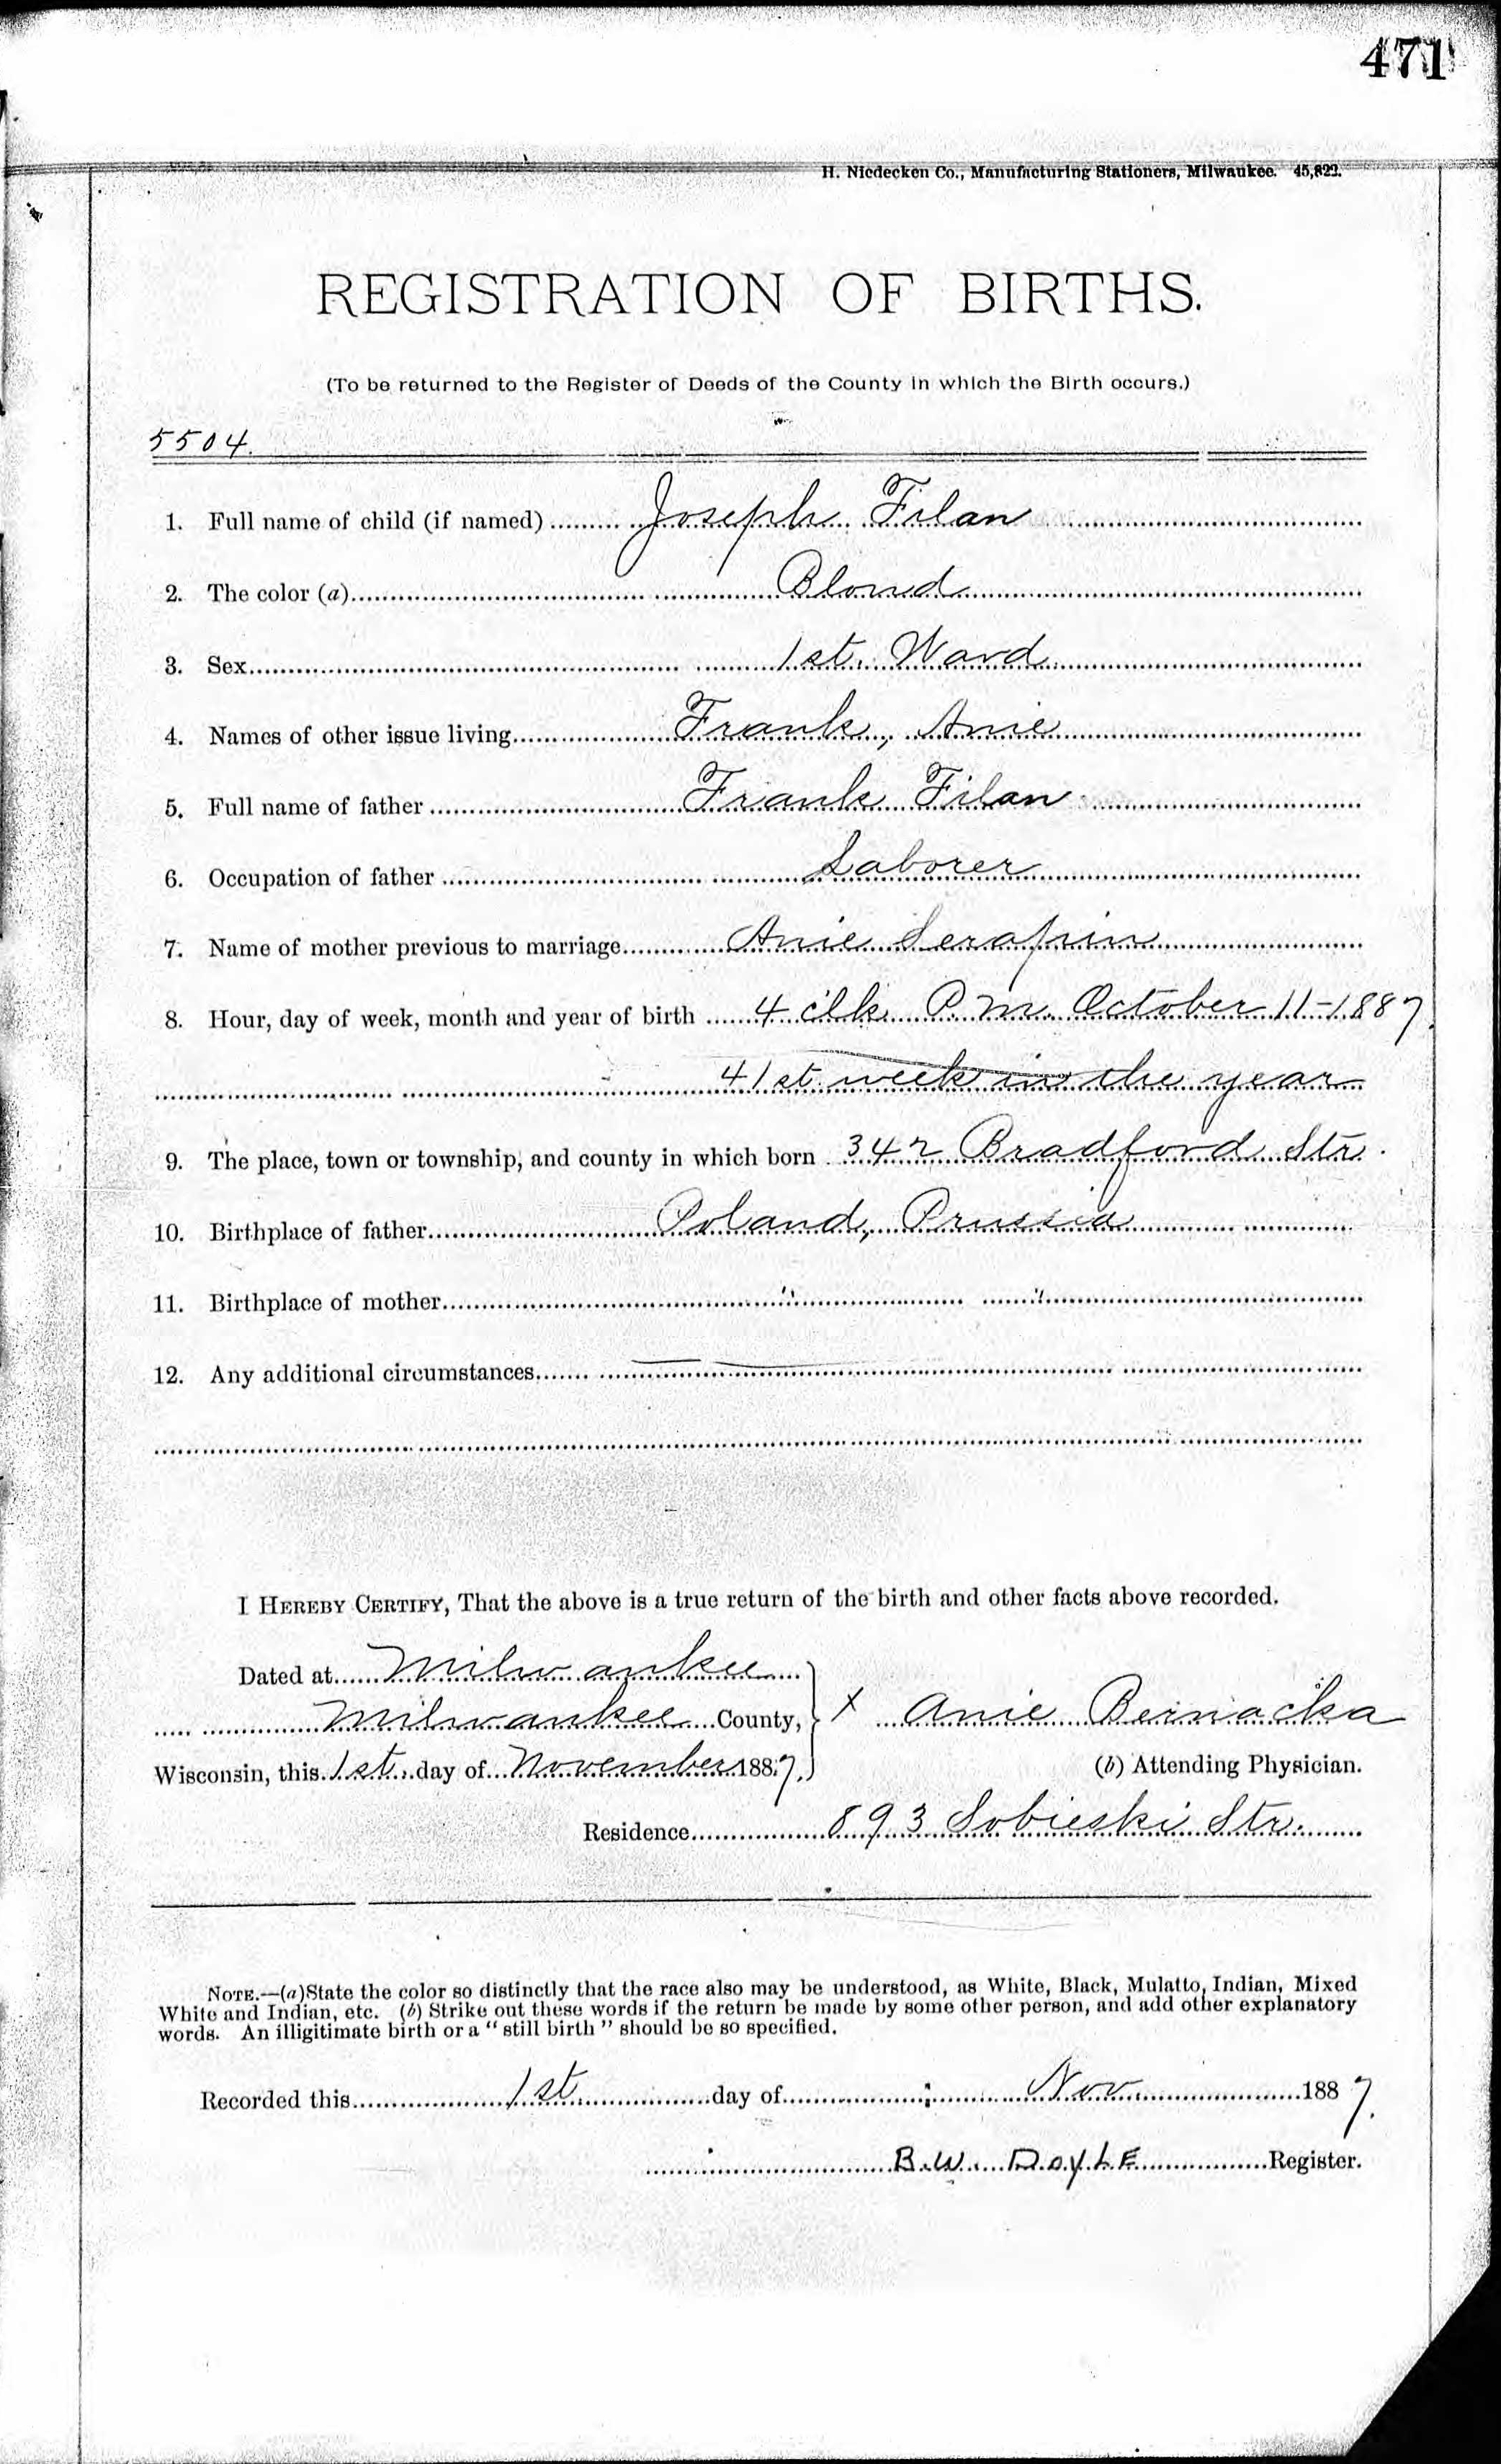 471
H. Niedecken Co., Manufacturing Stationers, Milwaukee. 45,822.
REGISTRATION OF BIRTHS.
(To be returned to the Register of Deeds of the County in which the Birth occurs.)
5504.
1. Full name of child (if named) Joseph Filan
2. The color (a) Blond
3. Sex 1st. Ward
4. Names of other issue living Frank, Anie
5. Full name of father Frank Filan
6. Occupation of father Laborer
7. Name of mother previous to marriage Anie Serafin
8. Hour, day of week, month and year of birth 4 clk P.M. October 11-1887
41st week in the year
9. The place, town or township, and county in which born 342 Bradford Str.
10. Birthplace of father Poland, Prussia
11. Birthplace of mother " "
12. Any additional circumstances
I HEREBY CERTIFY, That the above is a true return of the birth and other facts above recorded.
Dated at Milwaukee
Milwaukee County, } X Anie Bernacka
Wisconsin, this 1st. day of November 1887. (b) Attending Physician.
Residence 893 Sobieski Str.
NOTE.—(a)State the color so distinctly that the race also may be understood, as White, Black, Mulatto, Indian, Mixed
White and Indian, etc. (b) Strike out these words if the return be made by some other person, and add other explanatory
words. An illigitimate birth or a "still birth" should be so specified.
Recorded this 1st day of Nov. 1887.
B. W. DoyLE Register.